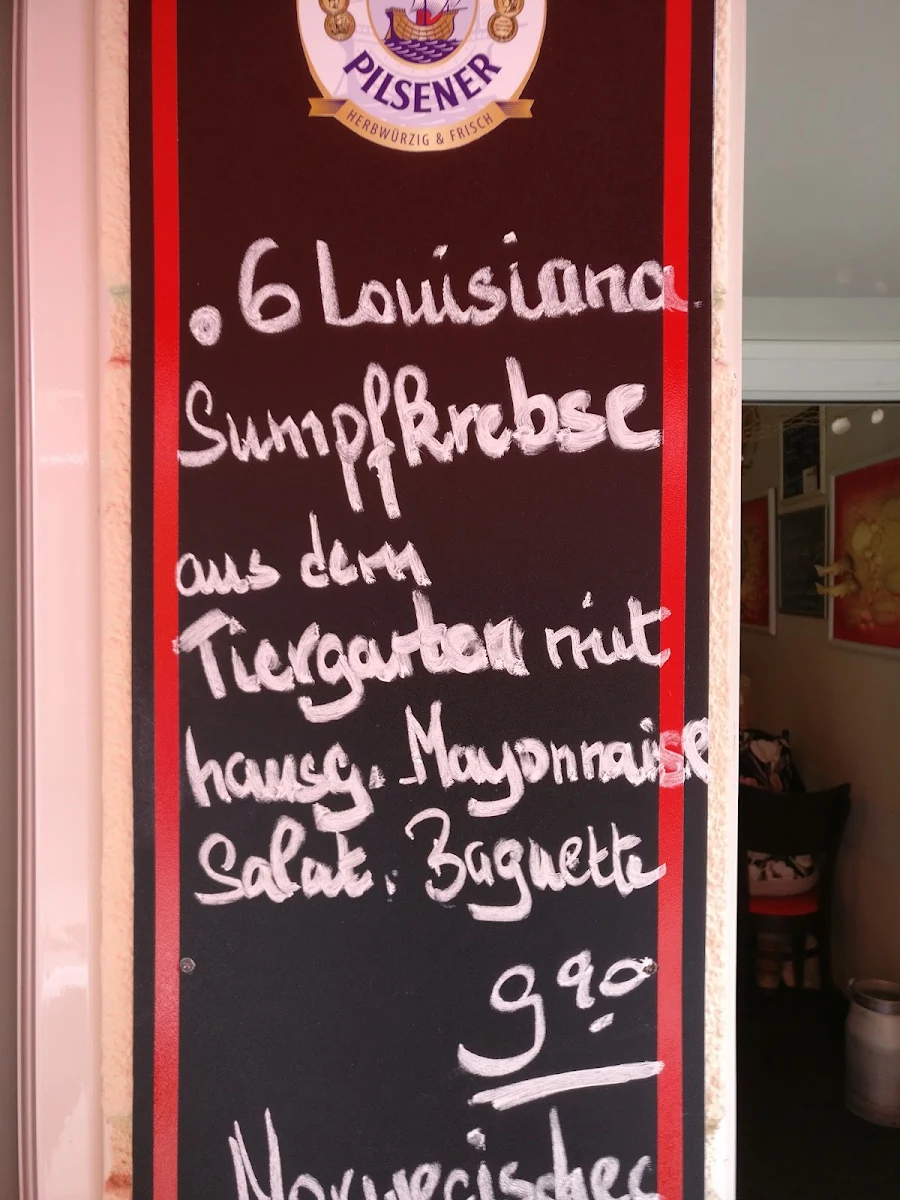 PILSENER
HERBWÜRZIG & FRISCH
. 6 Louisiana
Sumpfkrebse
aus dem
Tiergarten mit
hausg. Mayonnaise
Salat. Baguette
9 90
Norwegisches